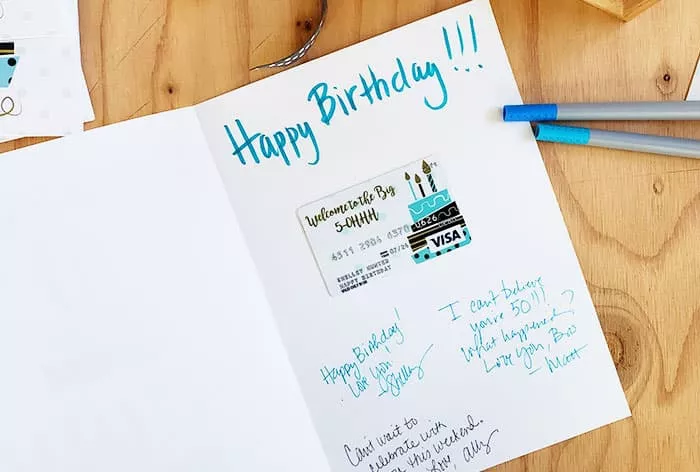 Happy Birthday!!!
Welcome to the Big
5-OHHH
4311 2906 4370
07/26
VISA
SHELLEY HUNTER
HAPPY BIRTHDAY
Happy Birthday!
Love you
-Shelly
I can't believe
you're 50!!!
What happened?
Love you, Bro
- Matt
Can't wait to
celebrate with
you this weekend.
Love Ally